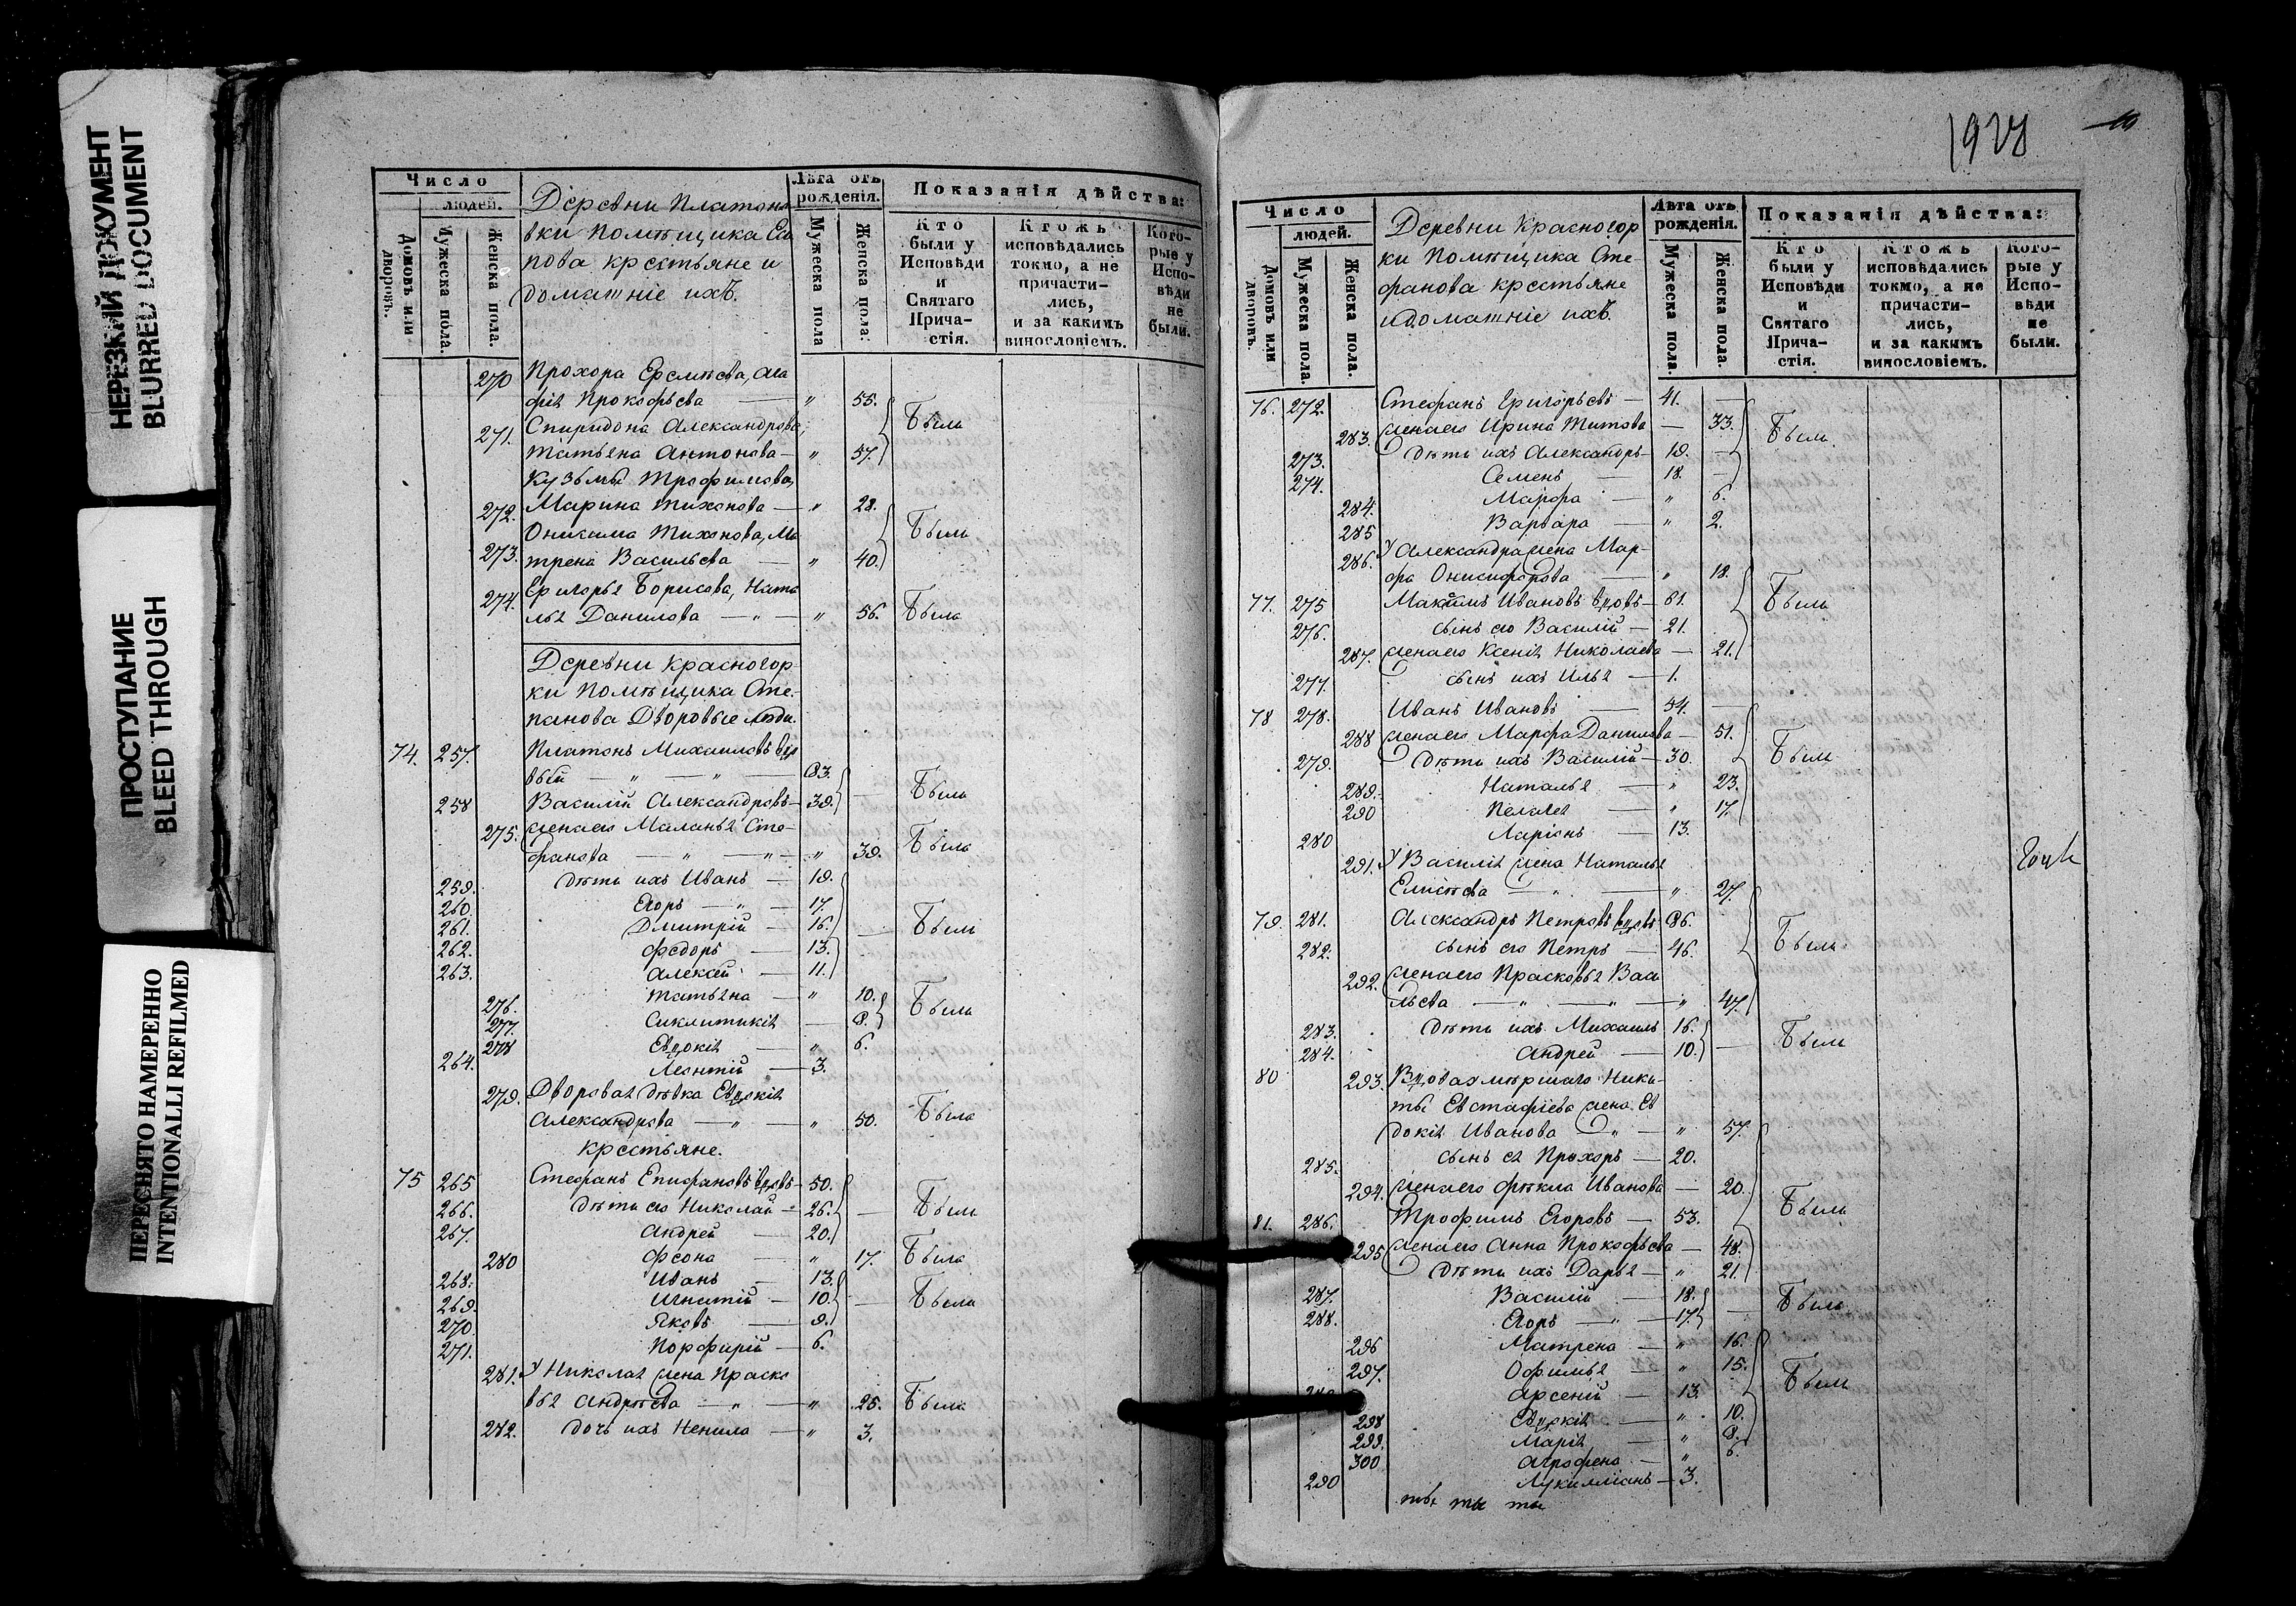 НЕРЕЗКИЙ ДОКУМЕНТ
BLURRED DOCUMENT
ПРОСТУПАНИЕ
BLEED THROUGH
ПЕРЕСНЯТО НАМЕРЕННО
INTENTIONALLI REFILMED
Число
людей.
Домовъ или дворовъ.
Мужеска пола.
Женска пола.
Деревни Платоно
вки помѣщика Еса
пова крестьяне и
домашніе ихъ.
Лѣта отъ рожденія.
Мужеска пола
Женска пола.
Показанія дѣйства:
Кто были у Исповѣди и Святаго Прича- стія.
Кто жъ исповѣдались токмо, а не причасти- лись, и за какимъ винословіемъ.
Кото- рые у Испо- вѣди не были.
270 Прохора Еремѣева, Ага
фія Прокофьева — " 55.
271. Спиридона Александрова, Были
Татьяна Антонова — " 57.
Кузьмы Трофимова,
272. Марина Тихонова — " 28.
Онисима Тихонова, Ма Были
273. трена Васильева — " 40.
274. Григорья Борисова, Ната
лья Данилова — " — " 56. Была
Деревни Красногор-
ки помѣщика Сте-
панова Дворовые люди.
74. 257. Платонъ Михаиловъ вдо
вый — " — " — 83.
258 Василій Александровъ — 39. Были
275. жена его Маланья Сте-
фанова — " — " — " 39. Была
259. дѣти ихъ Иванъ — 19.
260. Егоръ — " — 17.
261. Дмитрій — 16. Были
262. Федоръ — 13.
263. Алексѣй — 11.
276. Татьяна — " 10.
277. Сиклитикія — 8. Были
278 Евдокія — " 6.
264. Леонтій — 3.
279. Дворовая дѣвка Евдокія
Александрова — " — " 50. Была
крестьяне.
75 265 Стефанъ Епифановъ вдовъ — 50.
266. дѣти его Николай — 26. Были
267. Андрей — 20.
280 Фсона — " 17. Была
268. Иванъ — 13.
269. Игнатій — 10. Были
270. Яковъ — 9.
271. Порфирій — 6.
281. У Николая жена Праско
вья Андрѣева — " — " 25. Была
282. дочь ихъ Ненила — " 3.
1928
Число
людей.
Домовъ или дворовъ.
Мужеска пола.
Женска пола.
Деревни Красногор
ки помѣщика Сте-
фанова крестьяне
и домашніе ихъ.
Лѣта отъ рожденія.
Мужеска пола.
Женска пола.
Показанія дѣйства:
Кто были у Исповѣди и Святаго Прича- стія.
Кто жъ исповѣдались токмо, а не причасти- лись, и за какимъ винословіемъ.
Кото- рые у Испо- вѣди не были.
76. 272. Стефанъ Григорьевъ — 41. —
283. жена его Ирина Титова — 33. Были.
273. Дѣти ихъ Александръ — 19. —
274. Семенъ — 18. —
284. Марфа — " 6.
285 Варвара — " 2.
286. У Александра жена Мар-
фа Онисифорова — " 18.
77. 275 Макимъ Ивановъ вдовъ — 61. Были
276. сынъ его Василій — 21.
287. жена его Ксенія Николаева — 21.
277. сынъ ихъ Илья — 1.
78 278. Иванъ Ивановъ — 54. —
288 жена его Марфа Данилова — 51.
279. Дѣти ихъ Василій — 30. Были
289. Наталья — " 23.
290 Пелагея — " 17.
280 Ларіонъ — 13.
291. У Василія жена Наталья
Елисѣева — " — " 27.
79. 281. Александръ Петровъ вдовъ 86.
282. сынъ его Петръ — 46. Были
292. жена его Прасковья Васи
льева — " — " — " 47.
283. дѣти ихъ Михаилъ 16.
284. Андрей — 10. — Были
80 293. Вдова умершаго Ники-
ты Евстафіева жена Ев
докія Иванова — " — " 57.
285. сынъ ея Прохоръ — 20.
294. жена его Фекла Иванова — 20. Были
81. 286. Трофимъ Егоровъ — 53.
295 жена его Анна Прокофьева — 48.
Дѣти ихъ Дарья — " 21.
287. Василій — 18. Были
288. Егоръ — " — 17.
296 Матрена — " 16.
297. Офимья — " 15.
Арсеній — 13. Были
298 Евдокія — " 10.
299. Марія — " 8.
300 Агрофена — " 6.
290 Лукилліанъ — 3.